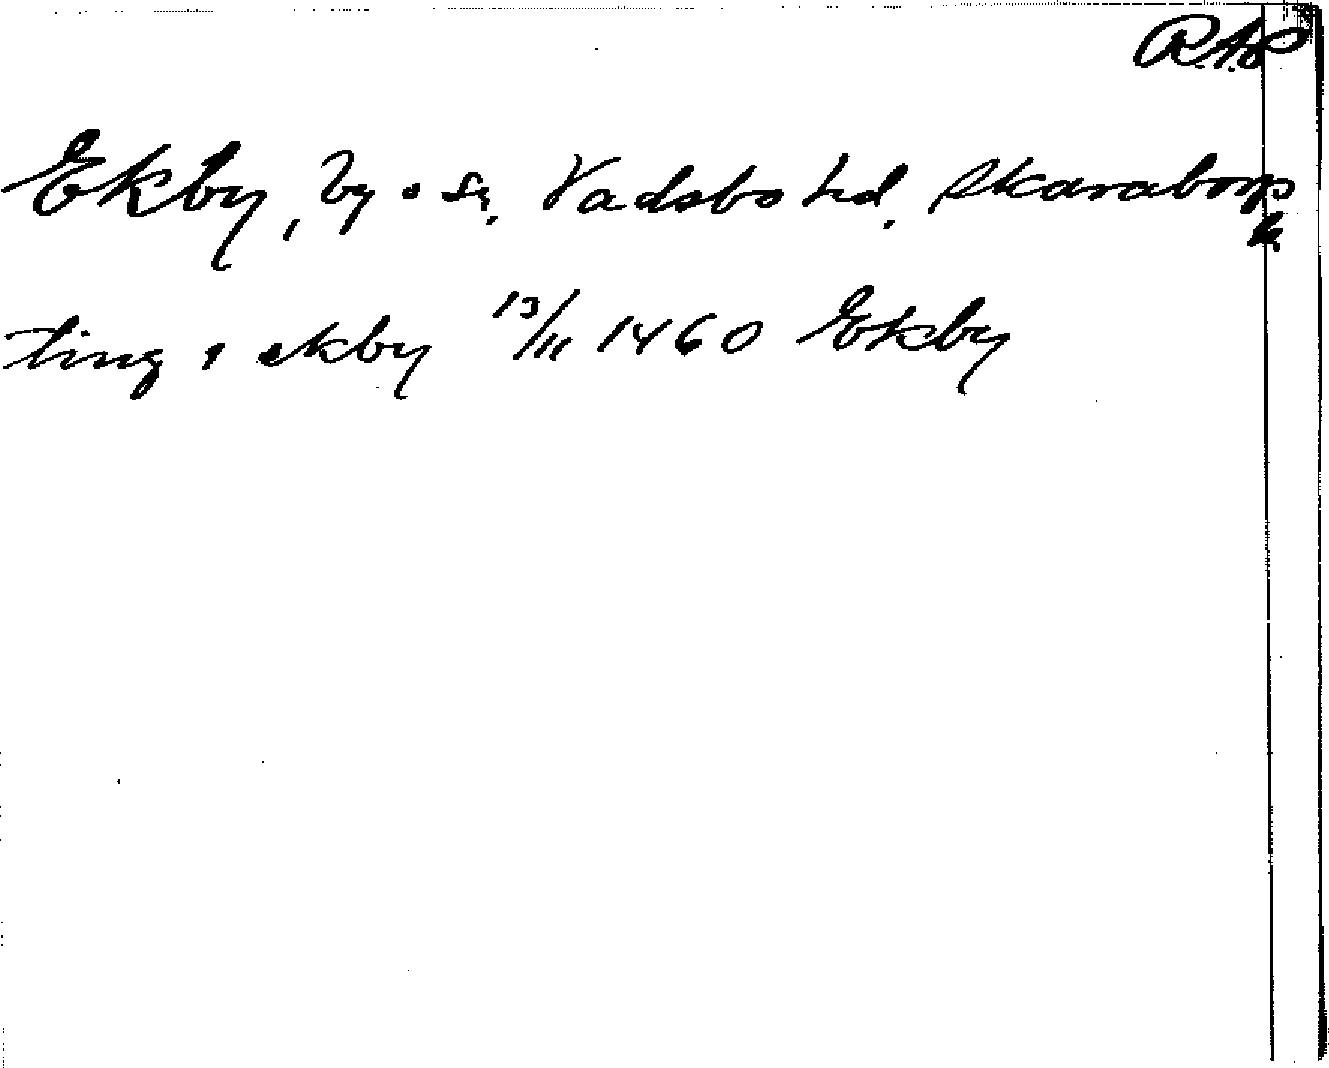 R.A.P
Ekby, by o sn, Vadsbo hd, Skaraborgs
l.
ting i ekby 13/11 1460 Ekby